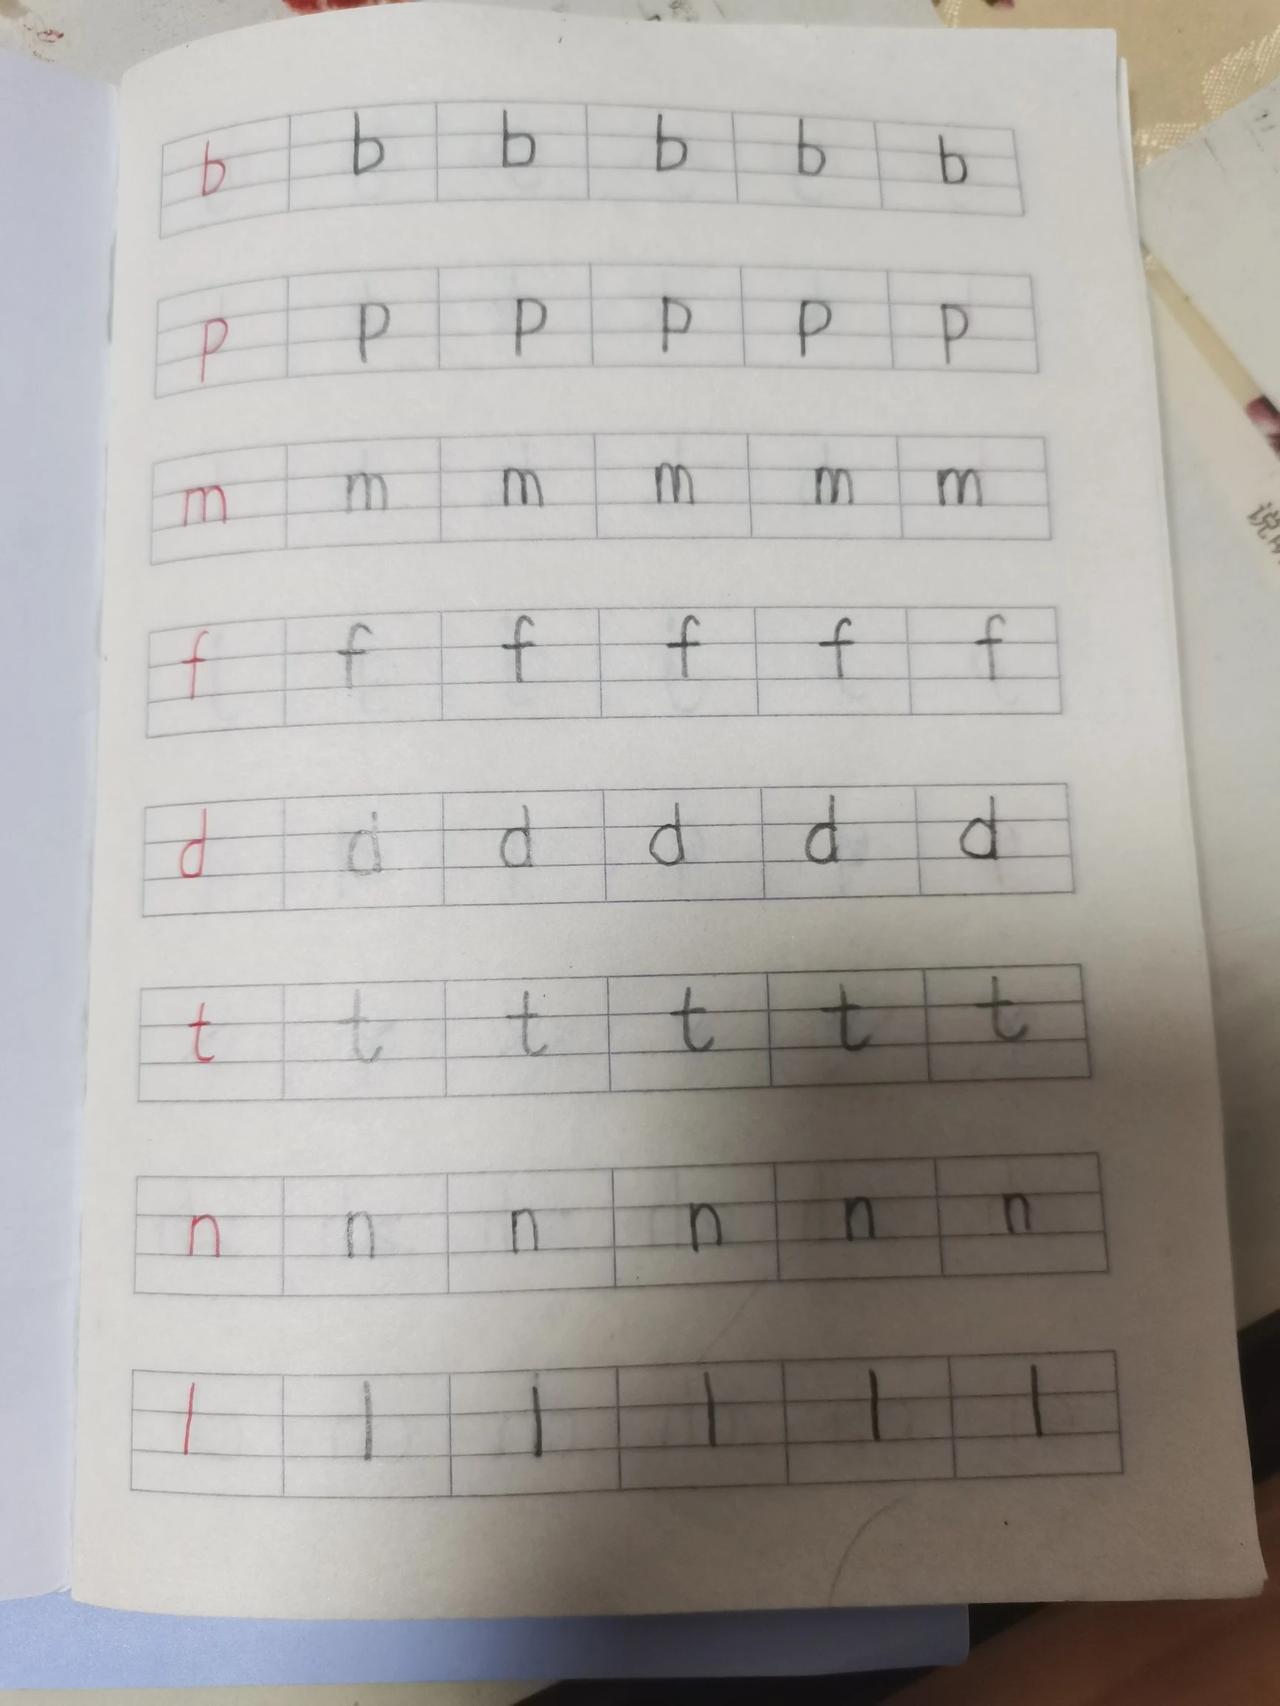 b b b b b b
p p p p p p
m m m m m m
f f f f f f
d d d d d d
t t t t t t
n n n n n n
l l l l l l
说